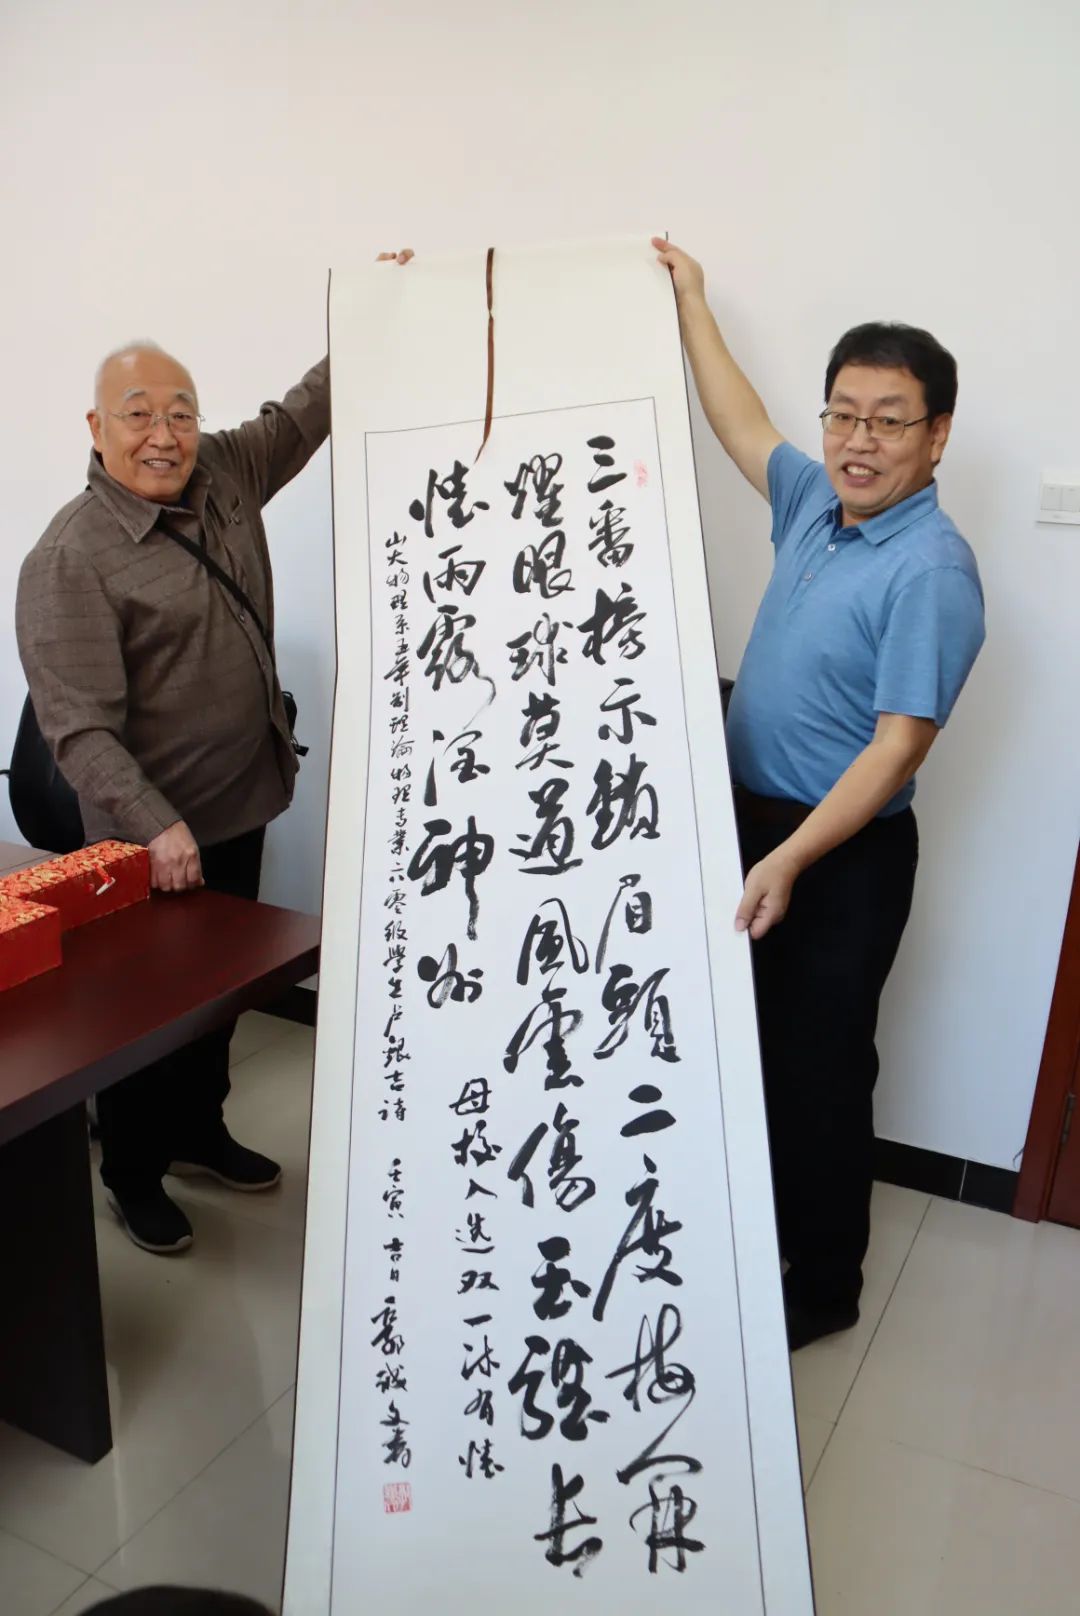 三番榜示鎖眉頭二度梅開
耀眼球莫道風雲傷玉長
懷雨露神州
母校入選双一流有懷
山大物理系五年制理論物理专業六零級學生卢銀吉詩 壬寅 吉日